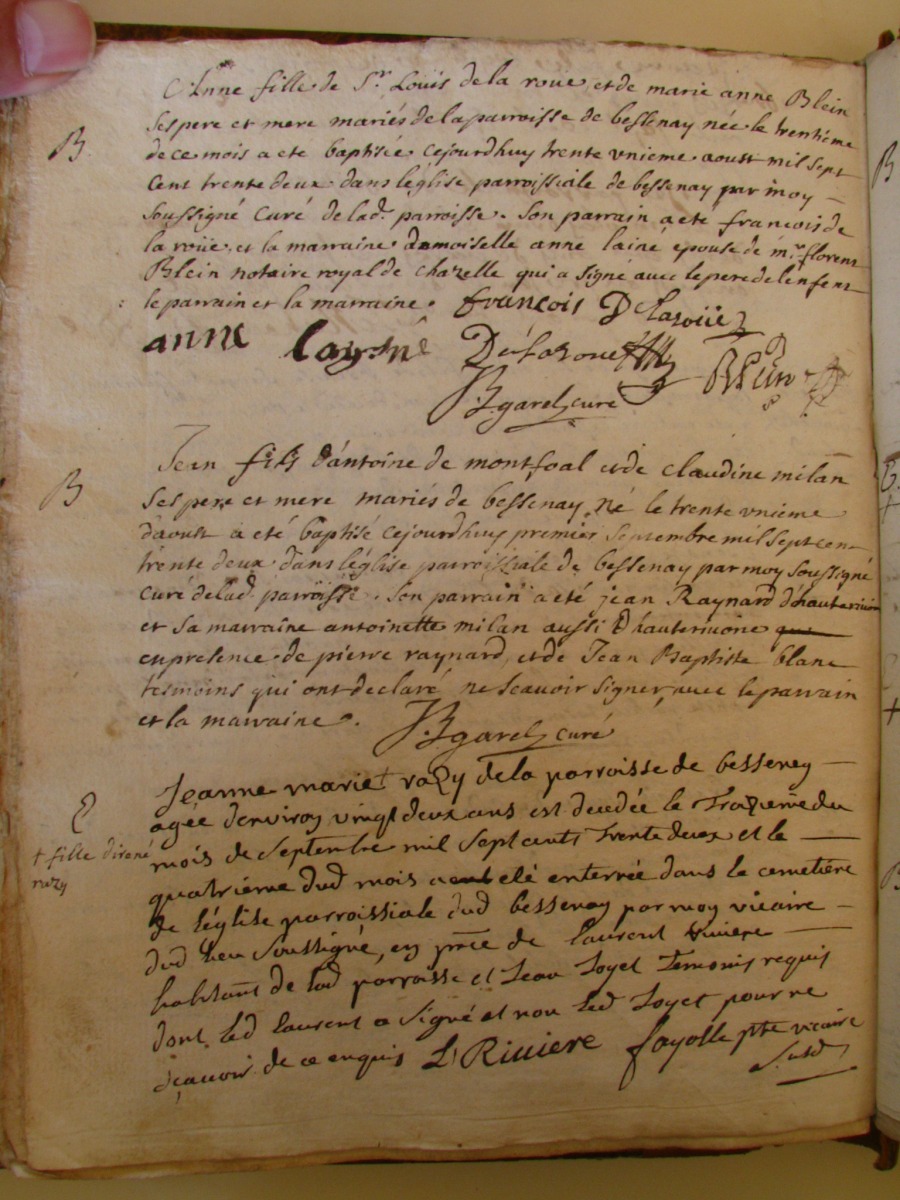 Anne fille de Sr. Loüis de la roue et de marie anne Blein
B
Ses pere et mere mariés de la parroisse de bessenay née le trentième
de ce mois a eté baptisée cejourdhuy trente unieme aoust mil sept
cent trente deux dans léglise parroissiale de bessenay par moy
soussigné curé de lad. parroisse. Son parrain a eté francois de
la roüe et la marraine damoiselle anne lainé epouse de mr. florens
Blein notaire royal de chazelle qui a signé avec le pere de lenfent
le parrain et la marraine. françois Delaroüe
anne laysné Delaroue Blein
JBgarel curé
Jean fils dántoine de montfoal et de claudine milan
B
Ses pere et mere mariés de bessenay né le trente unieme
daoust a eté baptisé cejourdhuy premier Septembre mil sept cent
trente deux dans léglise parroissiale de bessenay par moy soussigné
curé de lad. parroisse. Son parrain a eté jean Raynard d'hauterivoire
et sa marraine antoinette milan aussi D hauterivoire
en presence de pierre raynard et de Jean Baptiste blanc
tesmoins qui ont declaré ne scavoir signer avec le parrain
et la marraine. JBgarel curé
Jeanne marie + razy de la parroisse de bessenay
E
+ fille direné
razy
agée denviron vingt deux ans est decedée le Troizieme du
mois de septembre mil sept cents trente deux et le
quatrième dud mois a eté enterrée dans le cemetière
de léglise parroissiale dud bessenay par moy vicaire
dud lieu soussigné, en pnce de laurent Riviere
habitant de lad parroisse et Jean Joyet temoins requis
dont led laurent a signé et non led Joyet pour ne
sçavoir de ce enquis L Riviere fayolle ptre vicaire